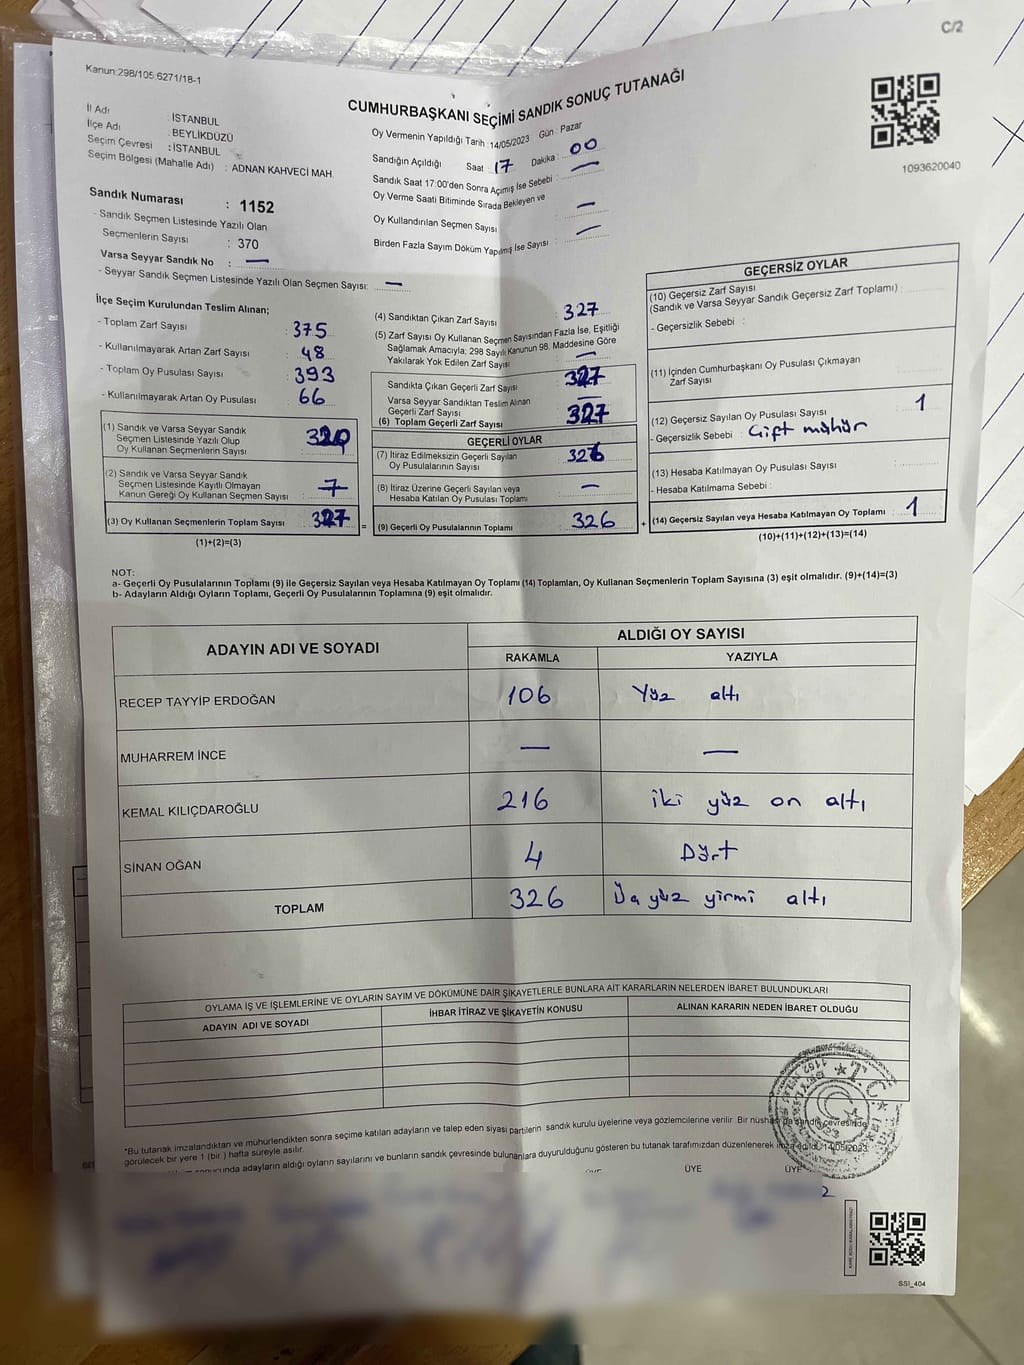 C/2
Kanun:298/105;6271/18-1
CUMHURBAŞKANI SEÇİMİ SANDIK SONUÇ TUTANAĞI
1093620040
İl Adı : İSTANBUL
İlçe Adı : BEYLİKDÜZÜ
Seçim Çevresi : İSTANBUL
Seçim Bölgesi (Mahalle Adı) : ADNAN KAHVECİ MAH.
Sandık Numarası : 1152
- Sandık Seçmen Listesinde Yazılı Olan
Seçmenlerin Sayısı : 370
Varsa Seyyar Sandık No : —
- Seyyar Sandık Seçmen Listesinde Yazılı Olan Seçmen Sayısı: —
Oy Vermenin Yapıldığı Tarih : 14/05/2023 Gün : Pazar
Sandığın Açıldığı Saat : 17 Dakika : 00
Sandık Saat 17:00'den Sonra Açımış İse Sebebi : —
Oy Verme Saati Bitiminde Sırada Bekleyen ve
Oy Kullandırılan Seçmen Sayısı : —
Birden Fazla Sayım Döküm Yapılmış İse Sayısı : —
İlçe Seçim Kurulundan Teslim Alınan;
- Toplam Zarf Sayısı : 375
- Kullanılmayarak Artan Zarf Sayısı : 48
- Toplam Oy Pusulası Sayısı : 393
- Kullanılmayarak Artan Oy Pusulası : 66
(1) Sandık ve Varsa Seyyar Sandık
Seçmen Listesinde Yazılı Olup
Oy Kullanan Seçmenlerin Sayısı : 320
(2) Sandık ve Varsa Seyyar Sandık
Seçmen Listesinde Kayıtlı Olmayan
Kanun Gereği Oy Kullanan Seçmen Sayısı : 7
(3) Oy Kullanan Seçmenlerin Toplam Sayısı : 327
(1)+(2)=(3)
(4) Sandıktan Çıkan Zarf Sayısı : 327
(5) Zarf Sayısı Oy Kullanan Seçmen Sayısından Fazla İse, Eşitliği
Sağlamak Amacıyla; 298 Sayılı Kanunun 98. Maddesine Göre
Yakılarak Yok Edilen Zarf Sayısı : —
Sandıkta Çıkan Geçerli Zarf Sayısı : 327
Varsa Seyyar Sandıktan Teslim Alınan
Geçerli Zarf Sayısı : —
(6) Toplam Geçerli Zarf Sayısı : 327
GEÇERLİ OYLAR
(7) İtiraz Edilmeksizin Geçerli Sayılan
Oy Pusulalarının Sayısı : 326
(8) İtiraz Üzerine Geçerli Sayılan veya
Hesaba Katılan Oy Pusulası Toplamı : —
= (9) Geçerli Oy Pusulalarının Toplamı : 326
GEÇERSİZ OYLAR
(10) Geçersiz Zarf Sayısı
(Sandık ve Varsa Seyyar Sandık Geçersiz Zarf Toplamı) :
- Geçersizlik Sebebi :
(11) İçinden Cumhurbaşkanı Oy Pusulası Çıkmayan
Zarf Sayısı
(12) Geçersiz Sayılan Oy Pusulası Sayısı : 1
- Geçersizlik Sebebi : Çift mühür
(13) Hesaba Katılmayan Oy Pusulası Sayısı :
- Hesaba Katılmama Sebebi :
+ (14) Geçersiz Sayılan veya Hesaba Katılmayan Oy Toplamı : 1
(10)+(11)+(12)+(13)=(14)
NOT:
a- Geçerli Oy Pusulalarının Toplamı (9) ile Geçersiz Sayılan veya Hesaba Katılmayan Oy Toplamı (14) Toplamları, Oy Kullanan Seçmenlerin Toplam Sayısına (3) eşit olmalıdır. (9)+(14)=(3)
b- Adayların Aldığı Oyların Toplamı, Geçerli Oy Pusulalarının Toplamına (9) eşit olmalıdır.
ADAYIN ADI VE SOYADI ALDIĞI OY SAYISI
RAKAMLA YAZIYLA
RECEP TAYYİP ERDOĞAN 106 Yüz altı
MUHARREM İNCE — —
KEMAL KILIÇDAROĞLU 216 iki yüz on altı
SİNAN OĞAN 4 Dört
TOPLAM 326 Üç yüz yirmi altı
OYLAMA İŞ VE İŞLEMLERİNE VE OYLARIN SAYIM VE DÖKÜMÜNE DAİR ŞİKAYETLERLE BUNLARA AİT KARARLARIN NELERDEN İBARET BULUNDUKLARI
ADAYIN ADI VE SOYADI İHBAR İTİRAZ VE ŞİKAYETİN KONUSU ALINAN KARARIN NEDEN İBARET OLDUĞU
*Bu tutanak imzalandıktan ve mühürlendikten sonra seçime katılan adayların ve talep eden siyasi partilerin sandık kurulu üyelerine veya gözlemcilerine verilir .Bir nüshası da sandık çevresinde
görülecek bir yere 1 (bir ) hafta süreyle asılır.
adayların aldığı oyların sayılarını ve bunların sandık çevresinde bulunanlara duyurulduğunu gösteren bu tutanak tarafımızdan düzenlenerek imza edildi. 14/05/2023
ÜYE ÜYE
T.C.
SSİ_404